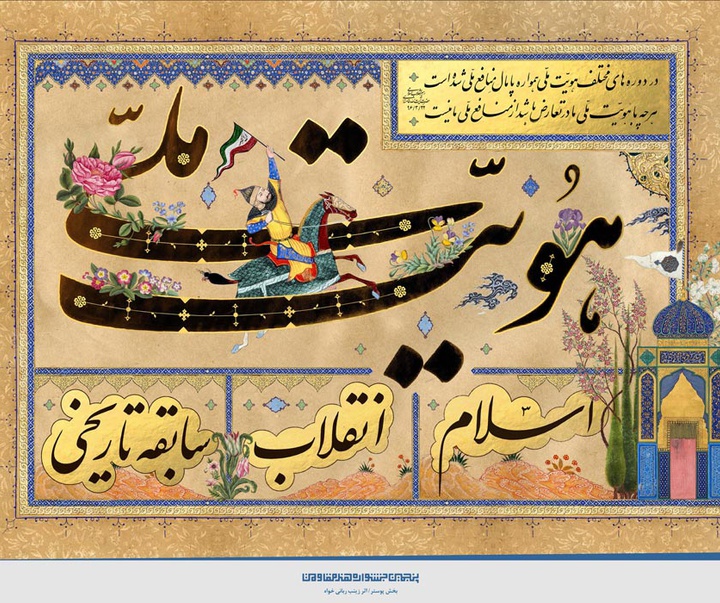 در دوره های مختلف هویّت ملّی همواره پامال منافع ملّی شده است
هر چه با هویّت ملّی ما در تعارض باشد از منافع ملّی ما نیست
۹۶/۳/۲۲
هُویّت ملّی
اسلام
انقلاب
سابقه تاریخی
پنجمین جشنواره هنر مقاومت
بخش پوستر / اثر زینب ربانی خواه